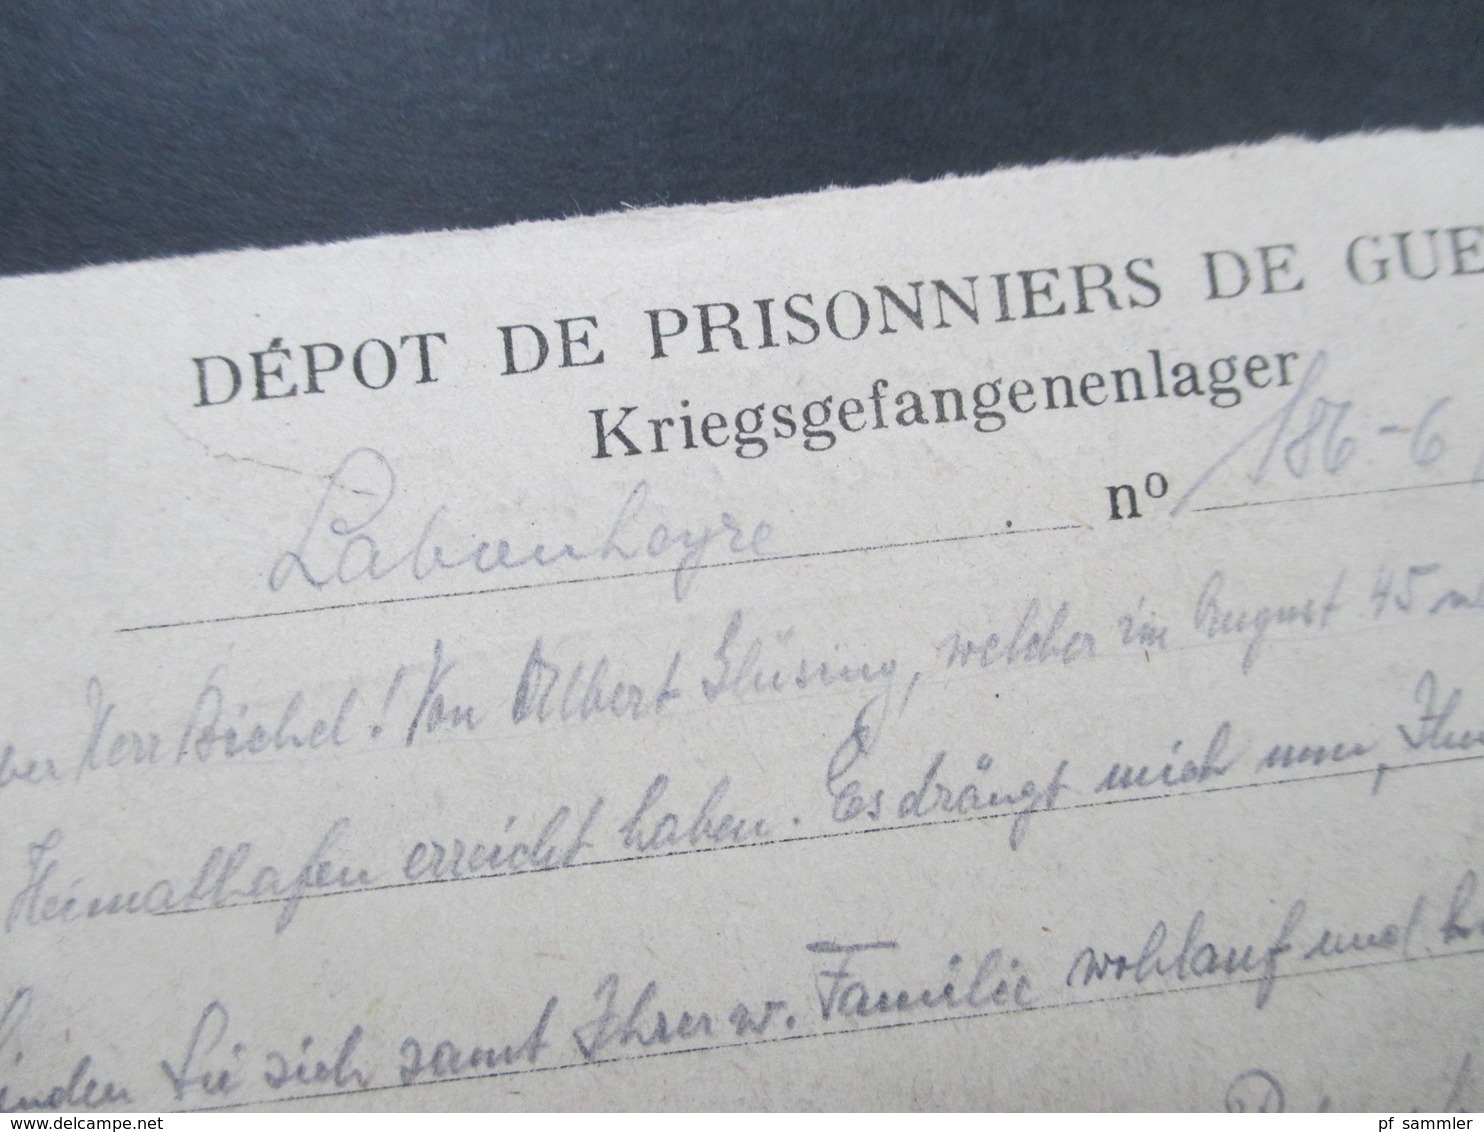 DÉPOT DE PRISONNIERS DE GUE
Kriegsgefangenenlager
Labouheyre nº 186-6
Herr Bichel! Von Albert Glüsing, welcher im August 45
Heimathafen erreicht haben. Es drängt mich nun,
inden Sie sich samt Ihrer w. Familie wohlauf und
pf_sammler
delcampe.net